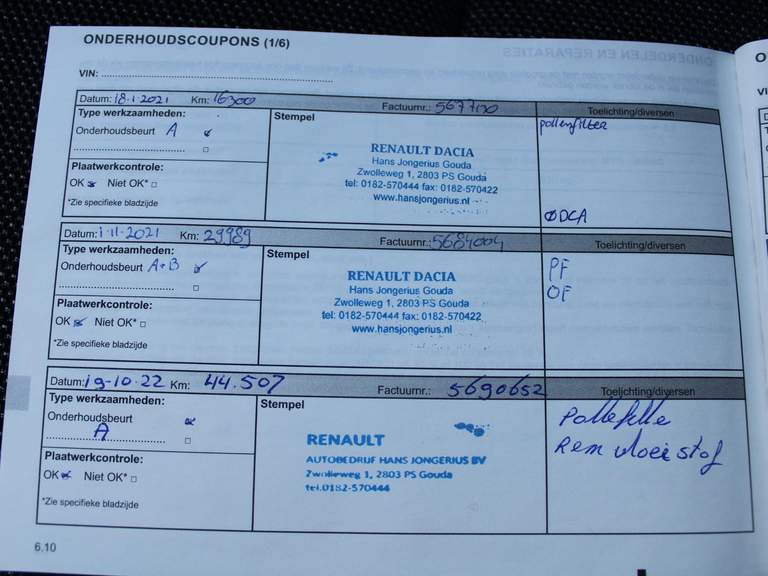 ONDERHOUDSCOUPONS (1/6)
VIN:
Datum: 18-1-2021 Km: 16300 Factuurnr.: 5677170 Toelichting/diversen
Type werkzaamheden:
Onderhoudsbeurt A
Plaatwerkcontrole:
OK Niet OK*
*Zie specifieke bladzijde
Stempel
RENAULT DACIA
Hans Jongerius Gouda
Zwolleweg 1, 2803 PS Gouda
tel: 0182-570444 fax: 0182-570422
www.hansjongerius.nl
pollenfilter
ØDCA
Datum: 1-11-2021 Km: 29989 Factuurnr.: 5684004 Toelichting/diversen
Type werkzaamheden:
Onderhoudsbeurt A+B
Plaatwerkcontrole:
OK Niet OK*
*Zie specifieke bladzijde
Stempel
RENAULT DACIA
Hans Jongerius Gouda
Zwolleweg 1, 2803 PS Gouda
tel: 0182-570444 fax: 0182-570422
www.hansjongerius.nl
PF
OF
Datum: 19-10-22 Km: 44.507 Factuurnr.: 5690652 Toelichting/diversen
Type werkzaamheden:
Onderhoudsbeurt
A
Plaatwerkcontrole:
OK Niet OK*
*Zie specifieke bladzijde
Stempel
RENAULT
AUTOBEDRIJF HANS JONGERIUS BV
Zwolleweg 1, 2803 PS Gouda
tel.0182-570444
Pollefille
Rem vloeistof
6.10